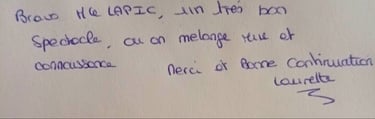 Bravo Mr LAPIC, un très bon
Spectacle, ou on melange rire et
connaissance Merci et Bonne Continuation
Laurette